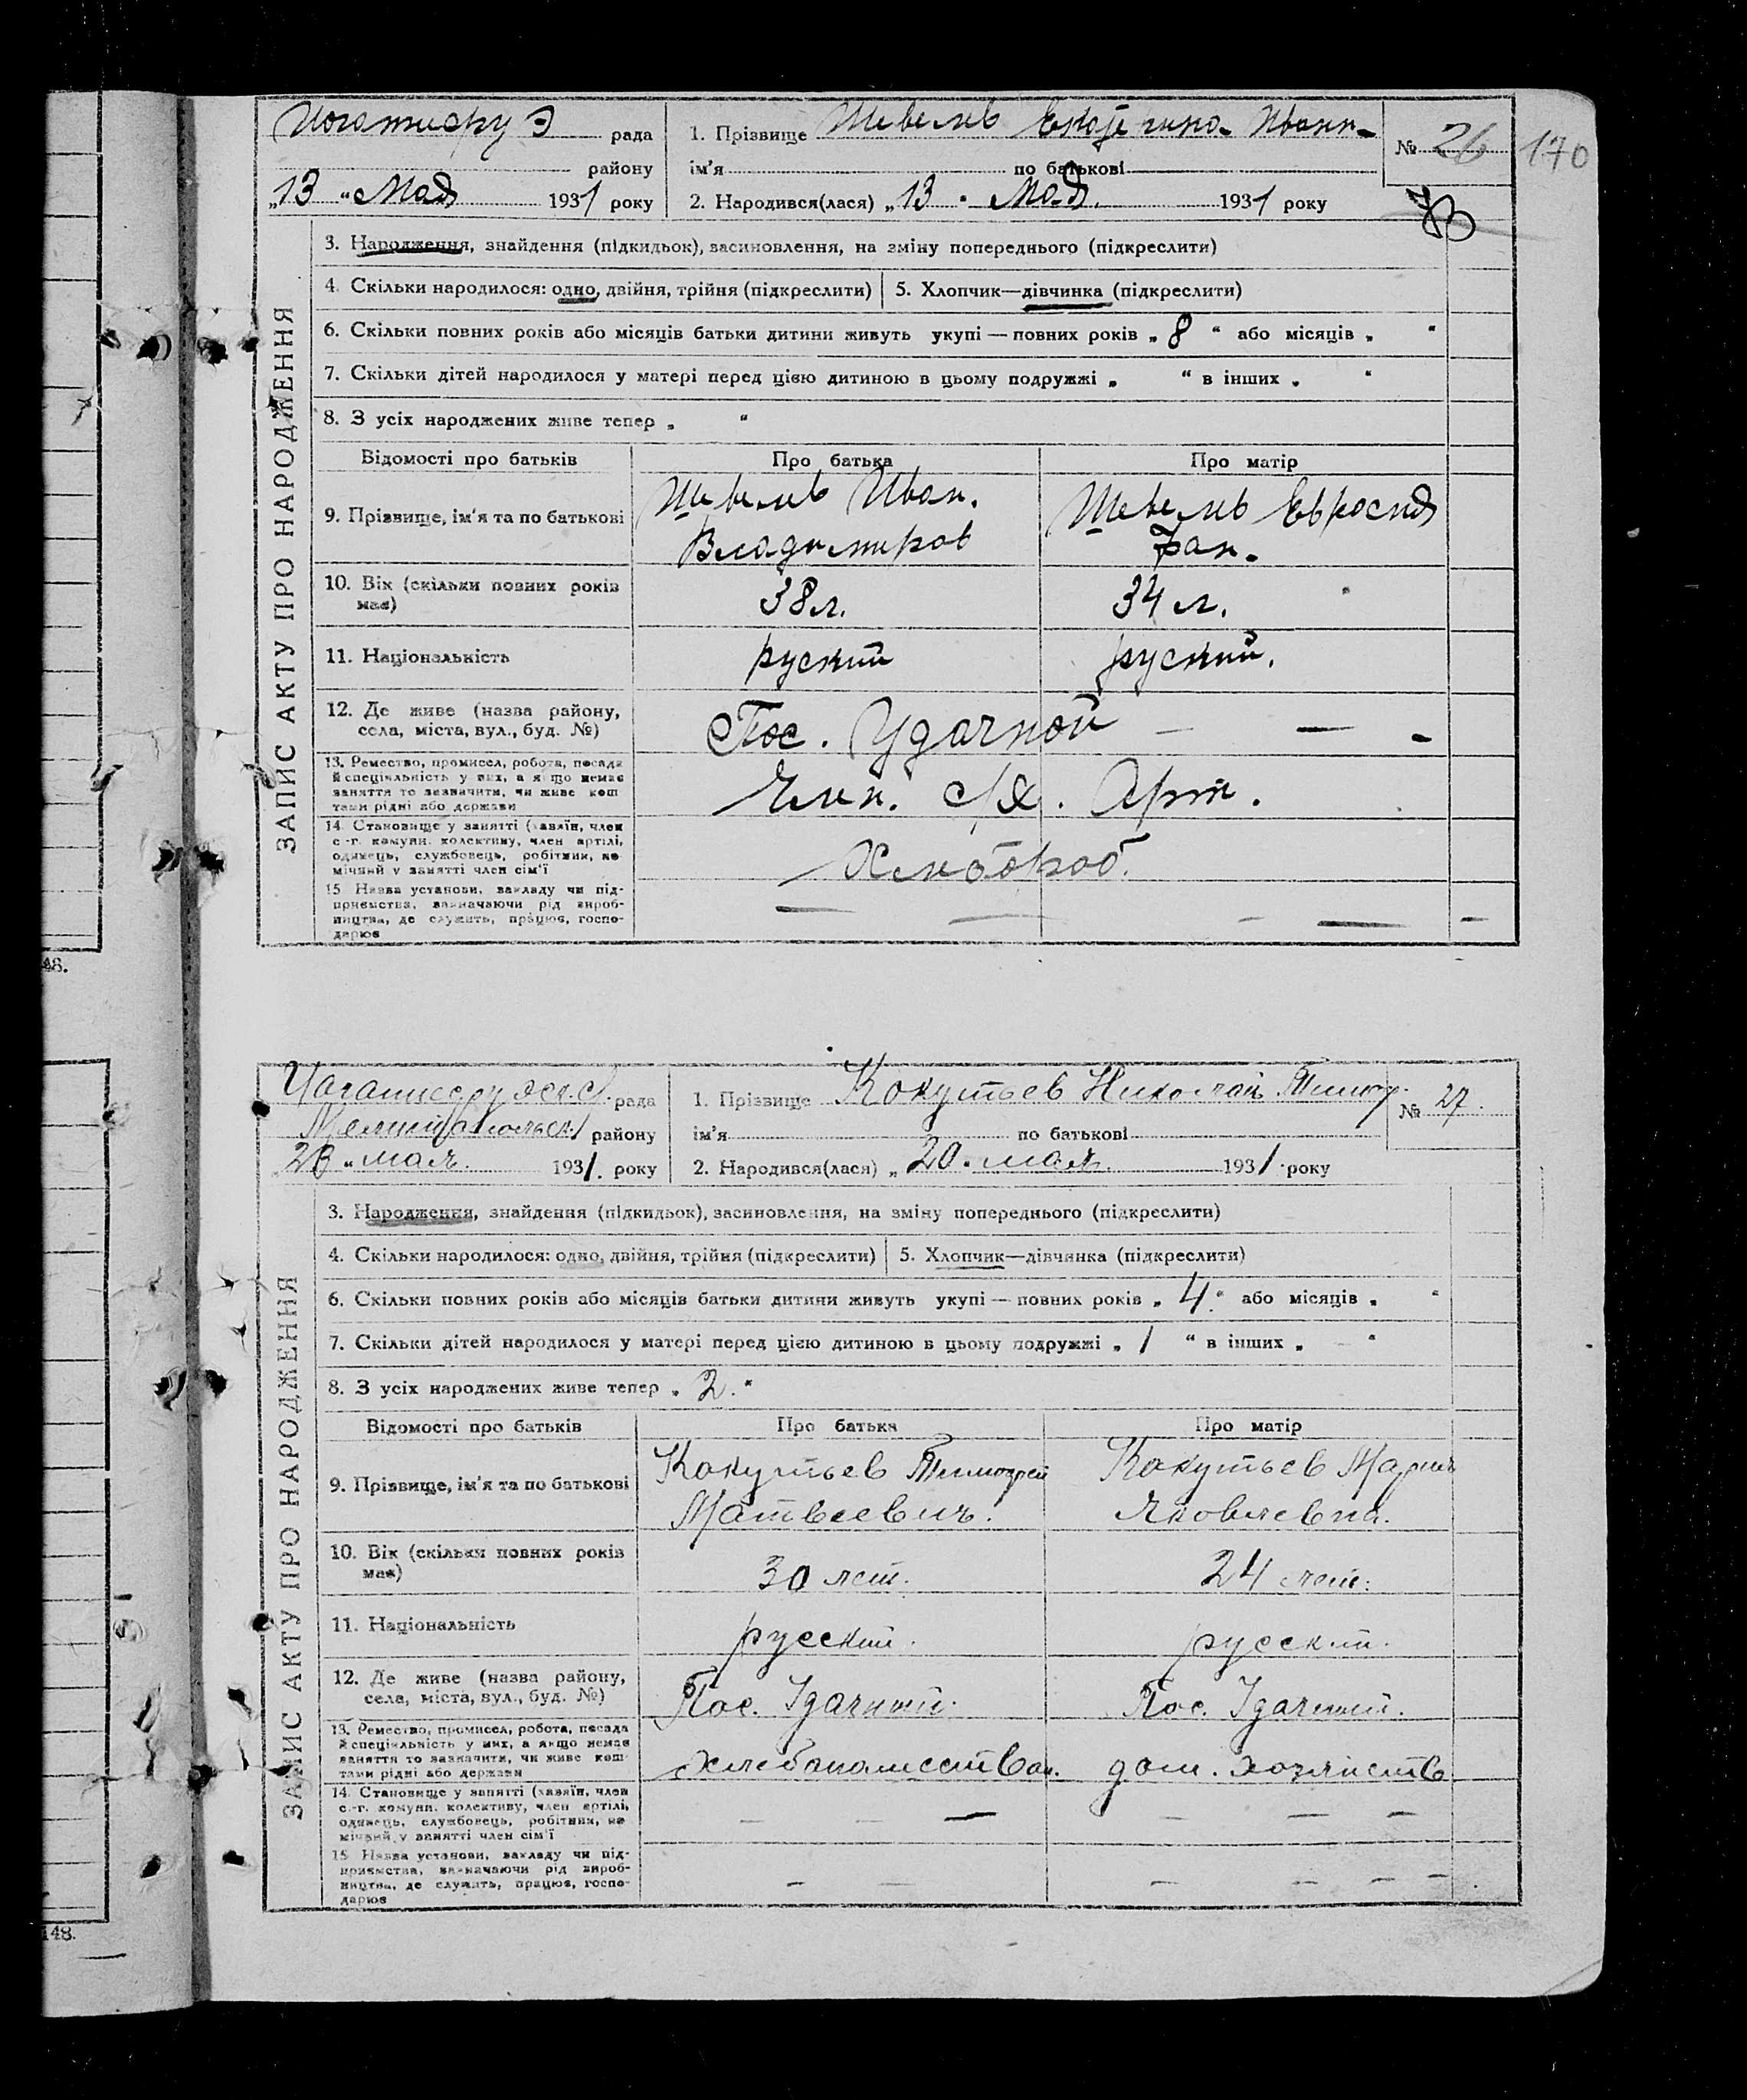 рада
1. Прізвище Шевель Иванн.
№ 26 170
району
ім'я по батькові
„13 “ Мая 1931 року
2. Народився(лася) „13 “ Мая. 1931 року
3. Народження, знайдення (підкидьок), засиновлення, на зміну попереднього (підкреслити)
4. Скільки народилося: одно, двійня, трійня (підкреслити) 5. Хлопчик—дівчинка (підкреслити)
6. Скільки повних років або місяців батьки дитини живуть укупі — повних років „ 8 “ або місяців „ “
7. Скільки дітей народилося у матері перед цією дитиною в цьому подружжі „ “ в інших „ “
8. З усіх народжених живе тепер „ “
ЗАПИС АКТУ ПРО НАРОДЖЕННЯ
Відомості про батьків Про батька Про матір
9. Прізвище, ім'я та по батькові
Шевель Иван.
Владимиров
Шевель
10. Вік (скільки повних років
має)
38 л. 34 л.
11. Національність руский руский.
12. Де живе (назва району,
села, міста, вул., буд. №)
Пос. Удачной — — -
13. Ремество, промисел, робота, посада
й спеціяльність у них, а якщо немає
заняття то зазначити, чи живе кош
тами рідні або держави
Член. с/х. Арт.
14. Становище у занятті (хазяїн, член
с.-г. комуни, колективу, член артілі,
одинець, службовець, робітник, по
мічний у занятті член сім'ї
Хлебороб.
15. Назва установи, закладу чи під-
приємства, зазначаючи рід вироб-
ництва, де служить, працює, госпо-
дарює
— — - — -
48.
рада
1. Прізвище Кокутьев Николай Тимоф.
№ 27.
району
ім'я по батькові
мая. 1931. року
2. Народився(лася) „ 20. мая. 1931 року
3. Народження, знайдення (підкидьок), засиновлення, на зміну попереднього (підкреслити)
4. Скільки народилося: одно, двійня, трійня (підкреслити) 5. Хлопчик—дівчинка (підкреслити)
6. Скільки повних років або місяців батьки дитини живуть укупі — повних років „ 4. “ або місяців „ “
7. Скільки дітей народилося у матері перед цією дитиною в цьому подружжі „ 1 “ в інших „ — “
8. З усіх народжених живе тепер „ 2. “
ЗАПИС АКТУ ПРО НАРОДЖЕННЯ
Відомості про батьків Про батька Про матір
9. Прізвище, ім'я та по батькові
Кокутьев Тимофей
Матвеевич.
Кокутьев Мария
Яковлевна.
10. Вік (скільки повних років
має)
30 лет. 24 лет.
11. Національність русский. русский.
12. Де живе (назва району,
села, міста, вул., буд. №)
Пос. Удачний. Пос. Удачний.
13. Ремество, промисел, робота, посада
й спеціяльність у них, а якщо немає
заняття то зазначити, чи живе кош
тами рідні або держави
дом. хозяйств
14. Становище у занятті (хазяїн, член
с.-г. комуни, колективу, член артілі,
одинець, службовець, робітник, по
мічний у занятті член сім'ї
— — — — — —
15. Назва установи, закладу чи під-
приємства, зазначаючи рід вироб-
ництва, де служить, працює, госпо-
дарює
— — — — — —
148.